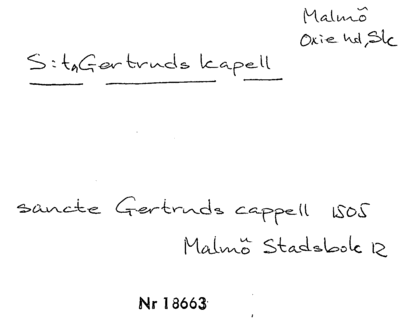 Malmö
Oxie hd, Sk
S:ta Gertruds kapell
sancte Gertruds cappell 1505
Malmö Stadsbok 12
Nr 18663